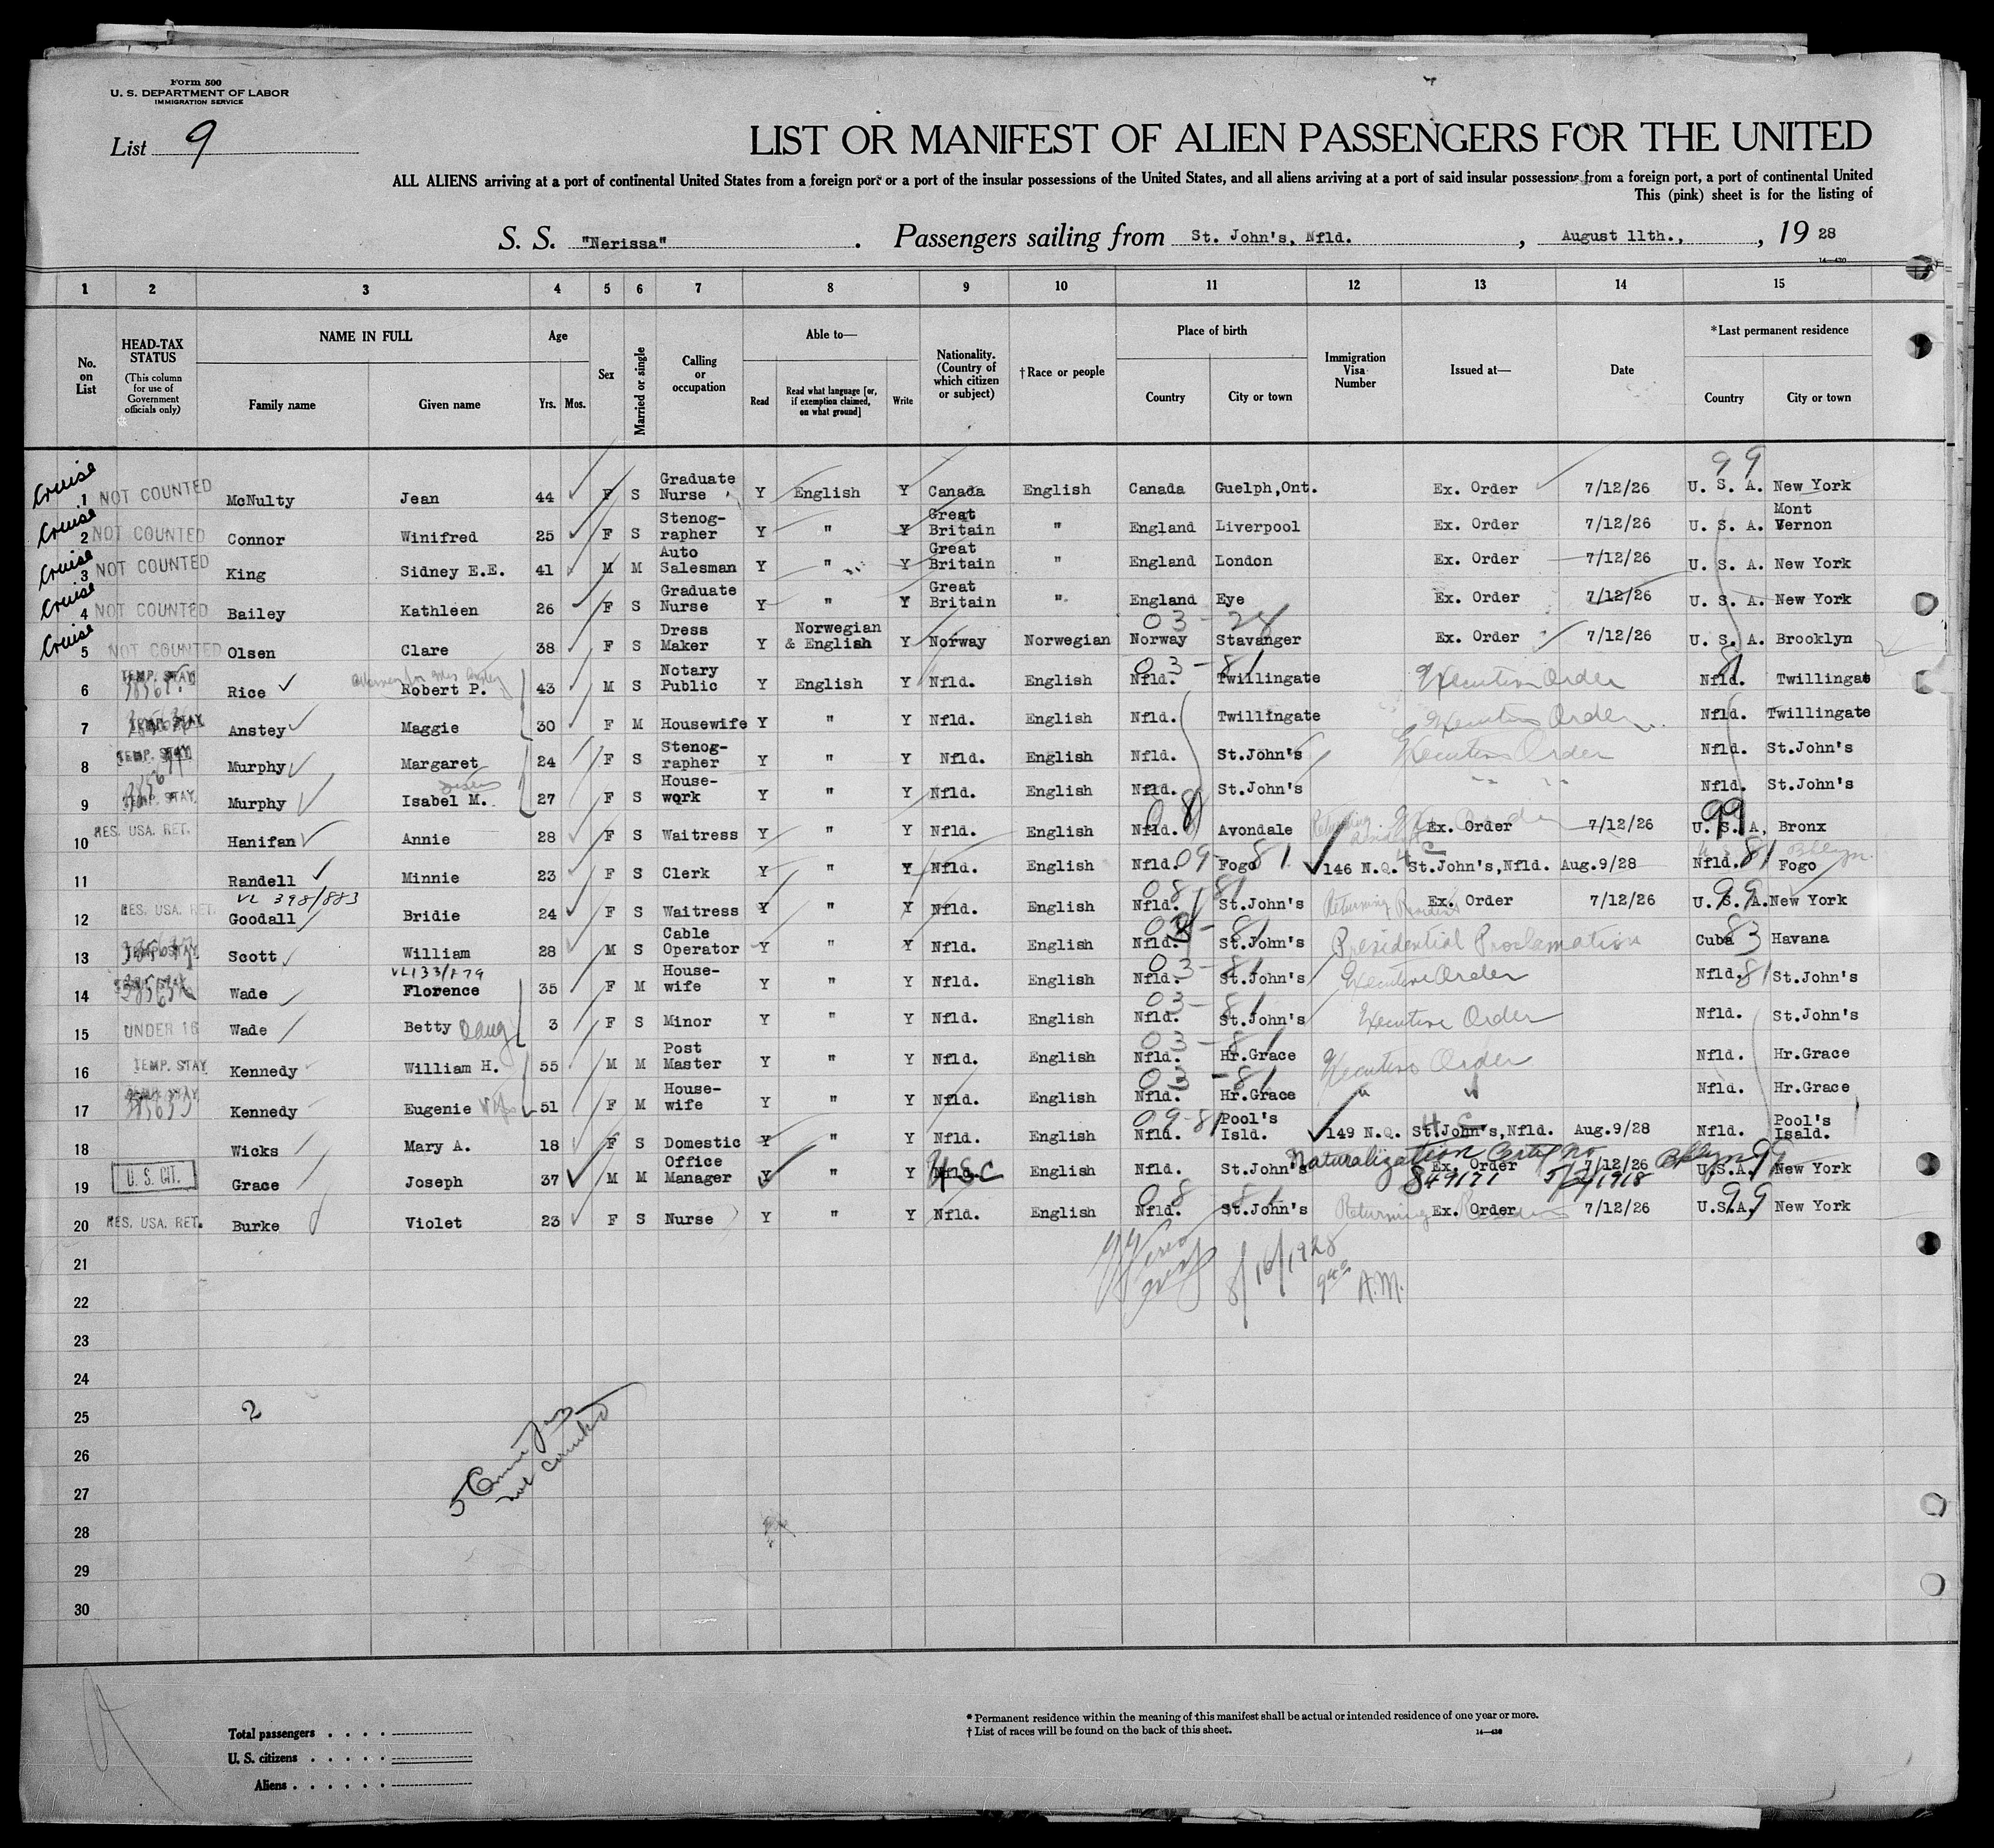 Form 500
U. S. DEPARTMENT OF LABOR
IMMIGRATION SERVICE
List 9
LIST OR MANIFEST OF ALIEN PASSENGERS FOR THE UNITED
ALL ALIENS arriving at a port of continental United States from a foreign port or a port of the insular possessions of the United States, and all aliens arriving at a port of said insular possessions from a foreign port, a port of continental United
This (pink) sheet is for the listing of
S. S. "Nerissa". Passengers sailing from St. John's, Nfld., August 11th., , 19 28
14—430
1 2 3 4 5 6 7 8 9 10 11 12 13 14 15
No. on List
HEAD-TAX STATUS (This column for use of Government officials only)
NAME IN FULL Family name Given name
Age Yrs. Mos.
Sex
Married or single
Calling or occupation
Able to— Read Read what language [or, if exemption claimed, on what ground] Write
Nationality. (Country of which citizen or subject)
†Race or people
Place of birth Country City or town
Immigration Visa Number
Issued at—
Date
*Last permanent residence Country City or town
99
Cruise 1 NOT COUNTED McNulty Jean 44 F S Graduate Nurse Y English Y Canada English Canada Guelph,Ont. Ex. Order 7/12/26 U. S. A. New York
Cruise 2 NOT COUNTED Connor Winifred 25 F S Stenographer Y " Y Great Britain " England Liverpool Ex. Order 7/12/26 U. S. A. Mont Vernon
Cruise 3 NOT COUNTED King Sidney E.E. 41 M M Auto Salesman Y " Y Great Britain " England London Ex. Order 7/12/26 U. S. A. New York
Cruise 4 NOT COUNTED Bailey Kathleen 26 F S Graduate Nurse Y " Y Great Britain " England Eye Ex. Order 7/12/26 U. S. A. New York
Cruise 5 NOT COUNTED Olsen Clare 38 F S Dress Maker Y Norwegian & English Y Norway Norwegian 03-28 Norway Stavanger Ex. Order 7/12/26 U. S. A. Brooklyn
6 TEMP. STAY Rice Robert P. 43 M S Notary Public Y English Y Nfld. English 03-81 Nfld. Twillingate Executive Order 81 Nfld. Twillingate
7 TEMP. STAY Anstey Maggie 30 F M Housewife Y " Y Nfld. English Nfld. Twillingate Executive Order Nfld. Twillingate
8 TEMP. STAY Murphy Margaret 24 F S Stenographer Y " Y Nfld. English Nfld. St.John's Executive Order Nfld. St.John's
9 TEMP. STAY Murphy Isabel M. 27 F S Housework Y " Y Nfld. English Nfld. St.John's " " Nfld. St.John's
10 RES. USA. RET. Hanifan Annie 28 F S Waitress Y " Y Nfld. English 08 Nfld. Avondale Returning Ex. Order 7/12/26 99 U. S. A, Bronx
11 Randell Minnie 23 F S Clerk Y " Y Nfld. English Nfld. 09 Fogo 81 146 N.Q. St.John's,Nfld. Aug.9/28 Nfld. 81 Fogo
VL 398/883
12 RES. USA. RET. Goodall Bridie 24 F S Waitress Y " Y Nfld. English 08-81 Nfld. St.John's Returning Resident Ex. Order 7/12/26 99 U. S. A. New York
13 TEMP. STAY Scott William 28 M S Cable Operator Y " Y Nfld. English 03-81 Nfld. St.John's Presidential Proclamation Cuba 83 Havana
VL133/179
14 TEMP. STAY Wade Florence 35 F M Housewife Y " Y Nfld. English 03-81 Nfld. St.John's Executive Order Nfld. 81 St.John's
15 UNDER 16 Wade Betty Daug 3 F S Minor Y " Y Nfld. English 03-81 Nfld. St.John's Executive Order Nfld. St.John's
16 TEMP. STAY Kennedy William H. 55 M M Post Master Y " Y Nfld. English 03-81 Nfld. Hr.Grace Executive Order Nfld. Hr.Grace
17 TEMP. STAY Kennedy Eugenie Wife 51 F M Housewife Y " Y Nfld. English 03-81 Nfld. Hr.Grace " " Nfld. Hr.Grace
18 Wicks Mary A. 18 F S Domestic Y " Y Nfld. English 09-81 Nfld. Pool's Isld. 149 N.Q. St.John's,Nfld. Aug.9/28 Nfld. Pool's Isald.
19 U. S. CIT. Grace Joseph 37 M M Office Manager Y " Y Nfld. U.S.C English Nfld. St.John's Naturalization Certif No 849171 Ex. Order 7/12/26 Bklyn 99 U.S.A. New York
20 RES. USA. RET. Burke Violet 23 F S Nurse Y " Y Nfld. English 08-81 Nfld. St.John's Returning Ex. Order 7/12/26 99 U.S.A. New York
21
8/16/1928 A.M.
22
23
24
25 2
5
not counted
26
27
28
29
30
Total passengers
U. S. citizens
Aliens
* Permanent residence within the meaning of this manifest shall be actual or intended residence of one year or more.
† List of races will be found on the back of this sheet. 14—430